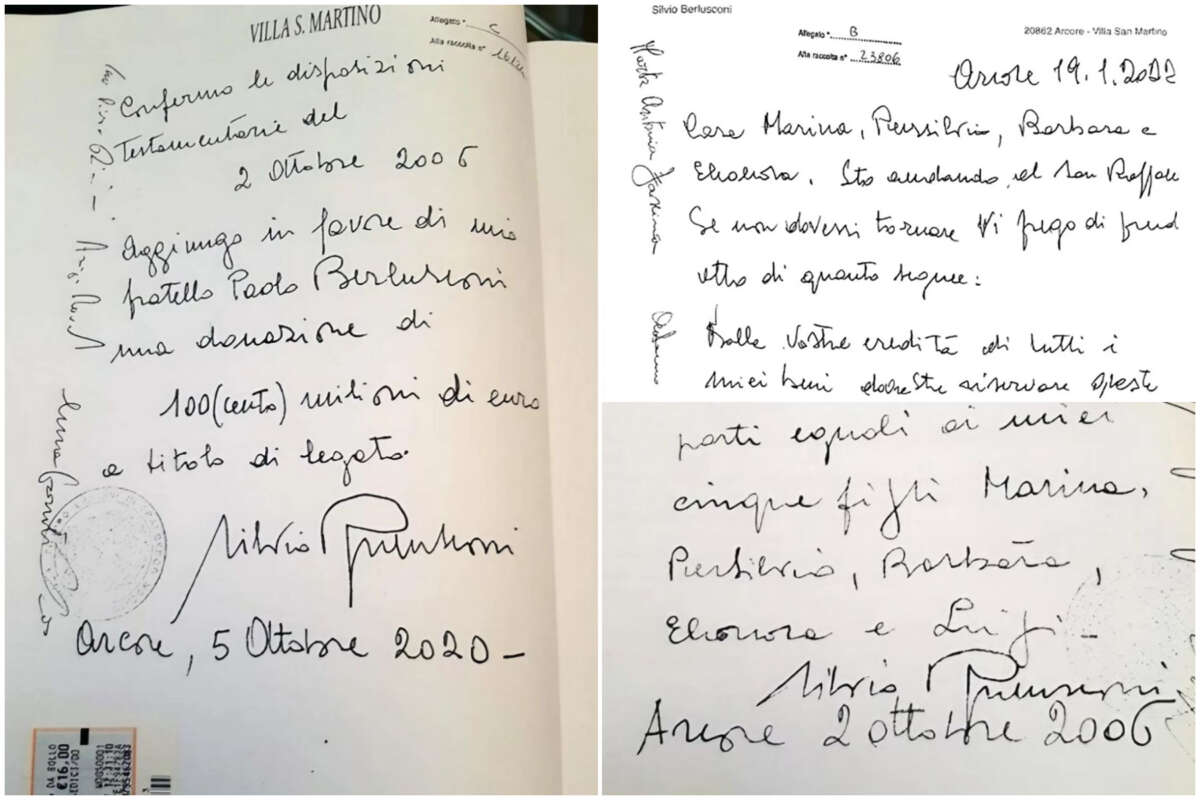 VILLA S. MARTINO
Allegato " C
Alla raccolta n°
Confermo le disposizioni
Testamentarie del
2 Ottobre 2006
Aggiungo in favore di mio
fratello Paolo Berlusconi
una donazione di
100 (cento) milioni di euro
a titolo di legato.
Silvio Berlusconi
Arcore, 5 Ottobre 2020 -
DA BOLLO
€16,00
SEDICI/00
Silvio Berlusconi
20862 Arcore - Villa San Martino
Allegato " B
Alla raccolta n° 23806
Arcore 19.1.2022
Cara Marina, Piersilvio, Barbara e
Eleonora. Sto andando al San Raffaele
Se non dovessi tornare Vi prego di prend
atto di quanto segue:
Dalle Vostre eredità di tutti i
miei beni dovreste riservare queste
parti eguali ai miei
cinque figli Marina,
Piersilvio, Barbara,
Eleonora e Luigi -
Silvio Berlusconi
Arcore 2 Ottobre 2006